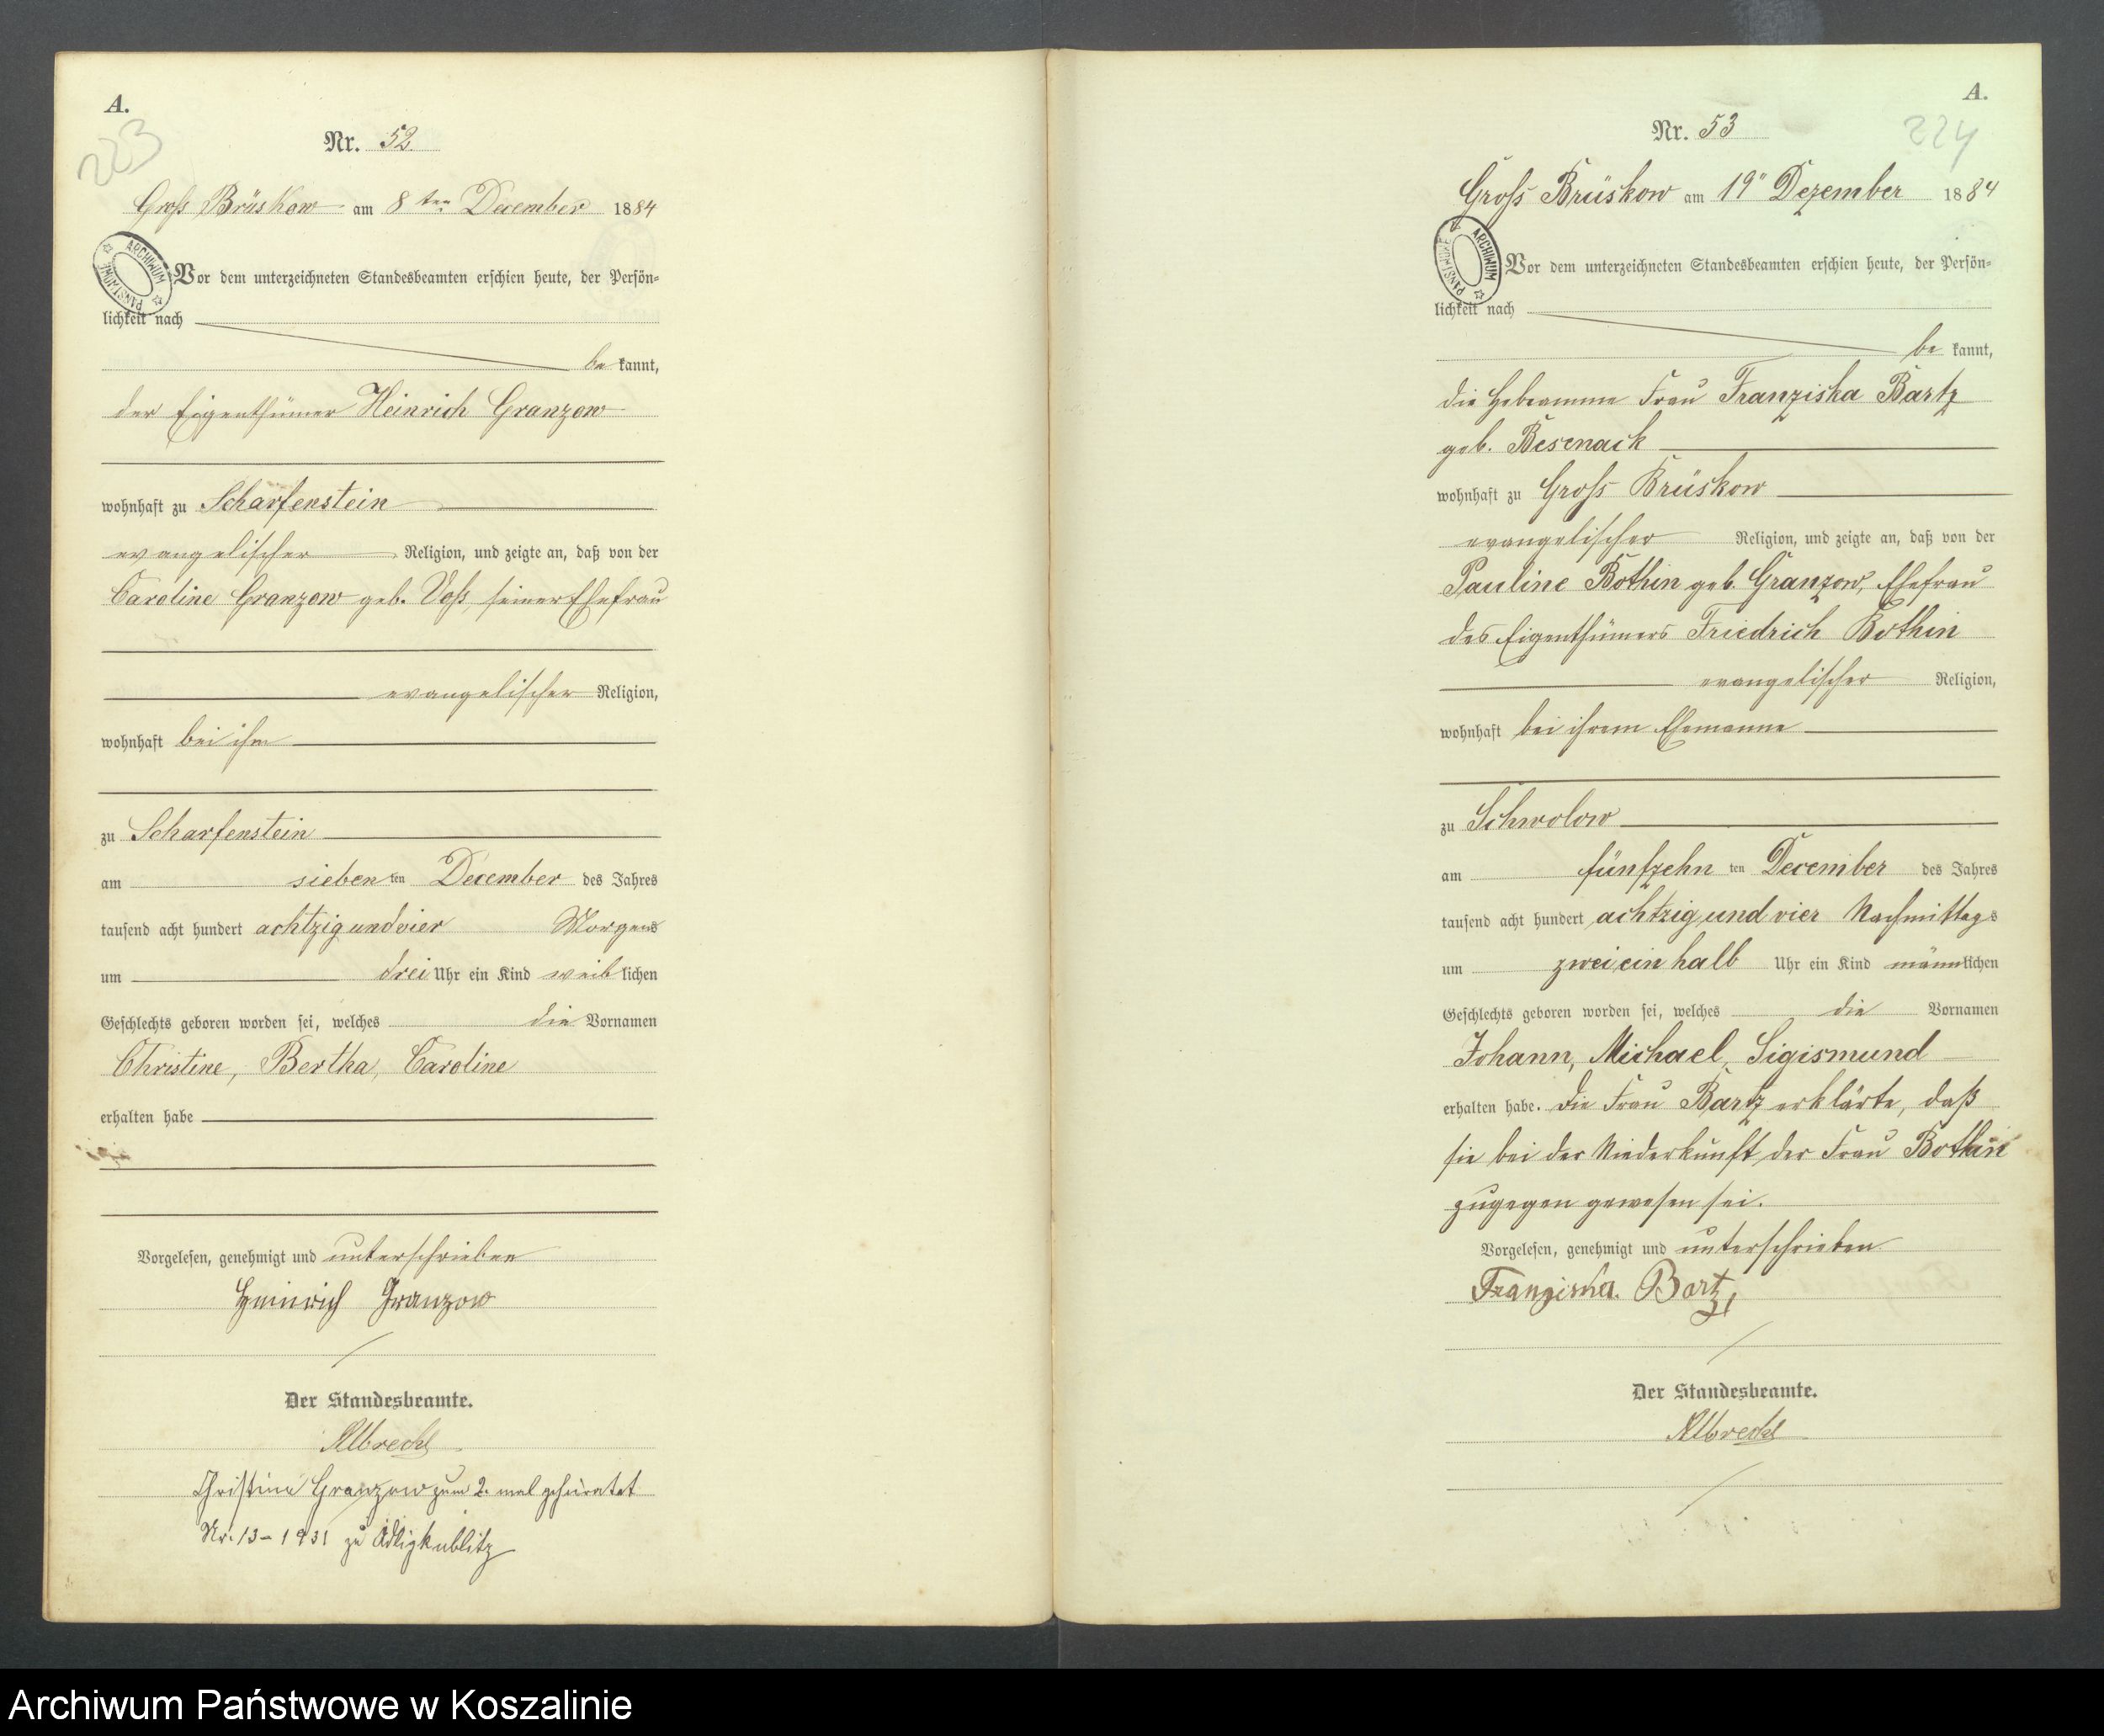 A.
223
Nr. 52.
Groß Brüskow am 8ten December 1884
ARCHIWUM PAŃSTWOWE
Vor dem unterzeichneten Standesbeamten erschien heute, der Persön-
lichkeit nach
be kannt,
der Eigenthümer Heinrich Granzow
wohnhaft zu Scharfenstein
evangelischer Religion, und zeigte an, daß von der
Caroline Granzow geb. Voß, seiner Ehefrau
evangelischer Religion,
wohnhaft bei ihm
zu Scharfenstein
am sieben ten December des Jahres
tausend acht hundert achtzig und vier Morgens
um drei Uhr ein Kind weib lichen
Geschlechts geboren worden sei, welches die Vornamen
Christine, Bertha, Caroline
erhalten habe
Vorgelesen, genehmigt und unterschrieben
Heinrich Granzow
Der Standesbeamte.
Albrecht
Christine Granzow zum 2. mal geheiratet
Nr. 13 - 1931 zu Adligkublitz
A.
224
Nr. 53
Groß Brüskow am 19" Dezember 1884
ARCHIWUM PAŃSTWOWE
Vor dem unterzeichneten Standesbeamten erschien heute, der Persön-
lichkeit nach
be kannt,
die Hebeamme Frau Franziska Bartz
geb. Besenack
wohnhaft zu Groß Brüskow
evangelischer Religion, und zeigte an, daß von der
Pauline Bothin geb. Granzow, Ehefrau
des Eigenthümers Friedrich Bothin
evangelischer Religion,
wohnhaft bei ihrem Ehemanne
zu Schwolow
am fünfzehn ten December des Jahres
tausend acht hundert achtzig und vier Nachmittags
um zwei ein halb Uhr ein Kind männlichen
Geschlechts geboren worden sei, welches die Vornamen
Johann, Michael, Sigismund
erhalten habe. Die Frau Bartz erklärte, daß
sie bei der Niederkunft der Frau Bothin
zugegen gewesen sei.
Vorgelesen, genehmigt und unterschrieben
Franziska Bartz
Der Standesbeamte.
Albrecht
Archiwum Państwowe w Koszalinie